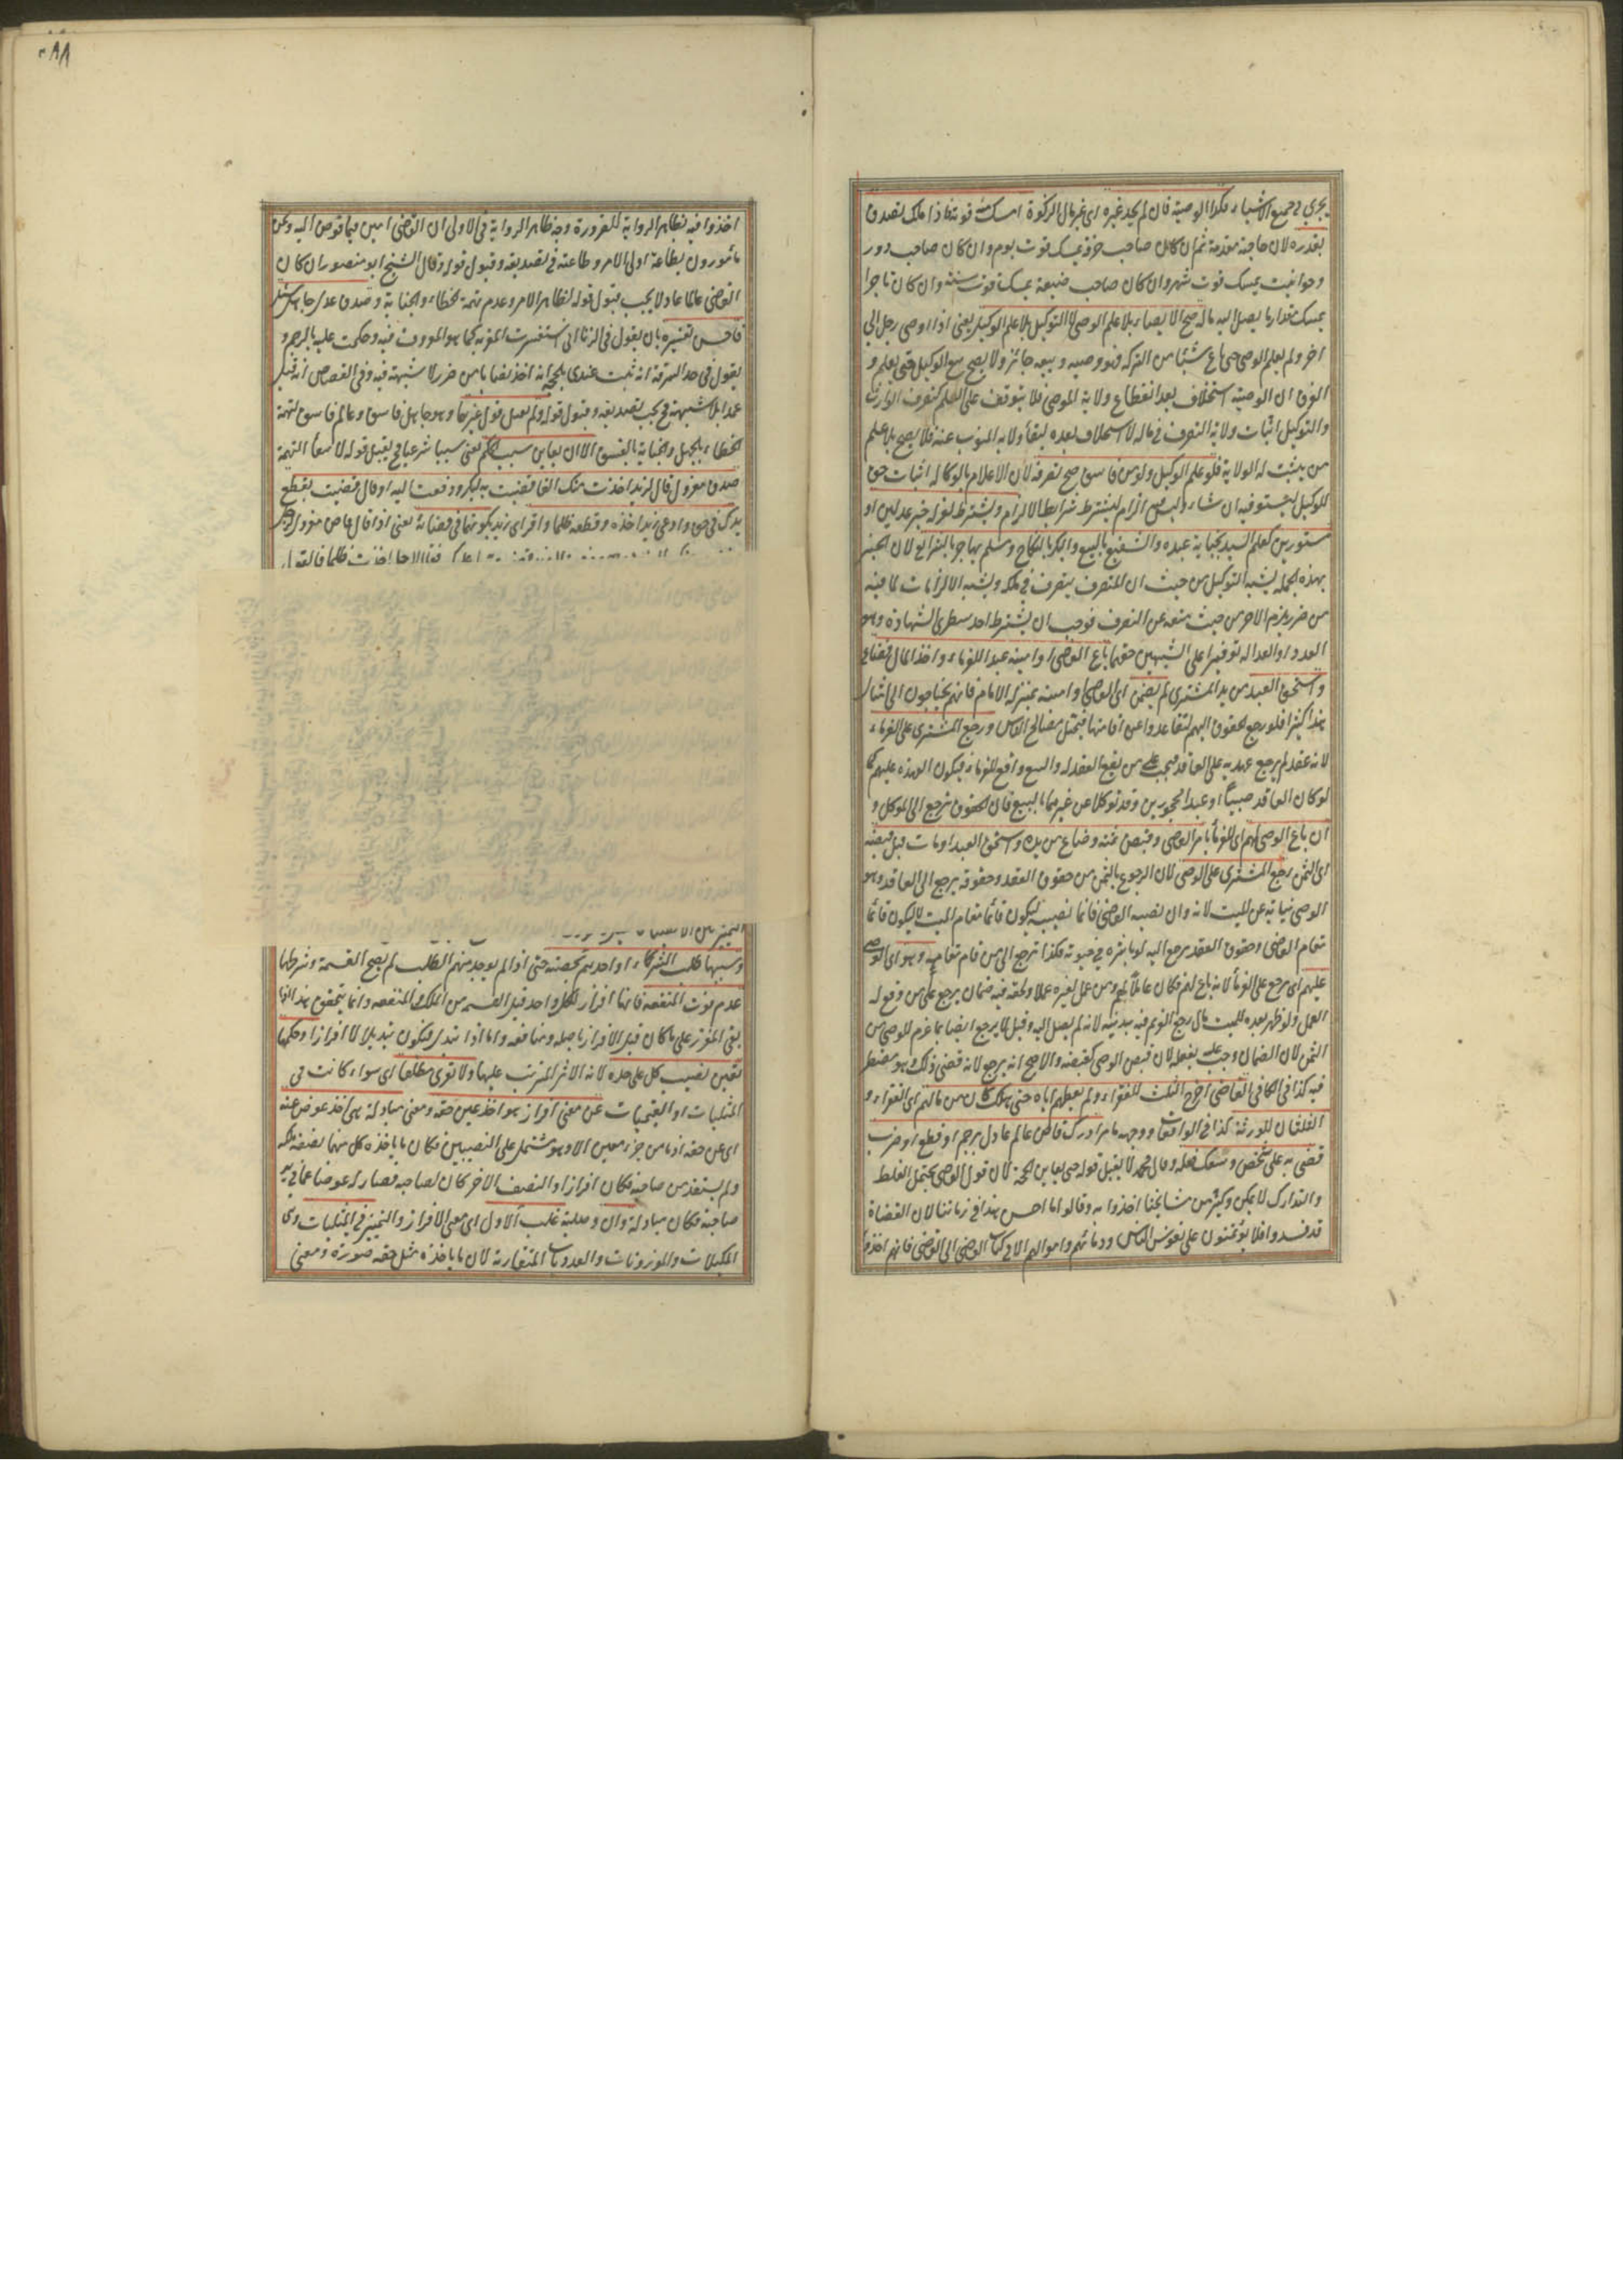 يجري في جميع الاشياء فكذا الوصية فان لم يجد غيره اى غير مال الزكوة امسك منه قوته فاذا ملك تصدق
بقدره لان حاجته مقدمة ثم ان كان صاحب حرفة يمسك قوت يوم وان كان صاحب دور
وحوانيت يمسك قوت شهر وان كان صاحب ضيعة يمسك قوت سنة وان كان تاجرا
يمسك مقدار ما يصل اليه ماله صح الايصاء بلا علم الوصى لا التوكيل بلا علم الوكيل يعنى اذا اوصى رجل الى
اخر ولم يعلم الوصى حتى باع شيئا من التركة فهو وصيه وبيعه جائز ولا يصح بيع الوكيل حتى يعلم و
الفرق ان الوصية استخلاف بعد انقطاع ولاية الموصى فلا يتوقف على العلم كتصرف الوارث
والتوكيل اثبات ولاية التصرف فى ماله لا استخلاف بعده لبقاء ولاية المنوب عنه فلا يصح بلا علم
من يثبت له الولاية فلو علم الوكيل ولو من فاسق صح تصرفه لان الاعلام بالوكالة اثبات حق
للوكيل ليستوفيه ان شاء وليس فيه الزام ليشترط شرايط الالزام ويشترط لعزله خبر عدلين او
مستورين كعلم السيد بجناية عبده والشفيع بالبيع والبكر بالنكاح ومسلم يهاجر بالشرايع لان الخبر
بهذه الجملة يشبه التوكيل من حيث ان المتصرف يتصرف فى ملكه ويشبه الالزامات لما فيه
من ضرر يلزم الاخر من حيث منعه عن التصرف فوجب ان يشترط احد شطرى الشهادة وهو
العدد او العدالة توفيرا على الشبهين حقهما باع القاضى او امينه عبدا للغرماء واخذ المال فضاع
واستحق العبد من يد المشترى لم يضمن اى القاضى او امينه بمنزلة الامام فانهم يحتاجون الى امثال
هذا كثيرا فلو رجع الحقوق اليهم لتقاعدوا عن اقامتها فيختل مصالح الناس ورجع المشترى على الغرماء
لانه عقد لم يرجع عهدته على العاقد فيجب على من يقع العقد له والبيع واقع للغرماء فيكون العهدة عليهم كما
لو كان العاقد صبيا او عبدا محجورين وقد توكلا عن غيرهما بالبيع فان الحقوق ترجع الى الموكل و
ان باع الوصى لهم اى للغرماء بامر القاضى وقبض ثمنه وضاع من يده واستحق العبد او مات قبل قبضه
اى الثمن رجع المشترى على الوصى لان الرجوع بالثمن من حقوق العقد وحقوقه يرجع الى العاقد وهو
الوصى نيابة عن الميت لانه وان نصبه القاضى فانما نصبه ليكون قائما مقام الميت لا ليكون قائما
مقام القاضى وحقوق العقد يرجع اليه لو باشره فى حيوته فكذا ترجع الى من قام مقامه وهو اى الوصى
عليهم اى يرجع على الغرماء لانه باع لهم فكان عاملا لهم ومن عمل لغيره عملا ولحقه فيه ضمان يرجع على من وقع له
العمل ولو ظهر بعده للميت مال رجع الغريم فيه بدينه لانه لم يصل اليه وقيل لا يرجع ايضا بما غرم للوصى من
الثمن لان الضمان وجب عليه بفعله لان قبض الوصى كقبضه والاصح انه يرجع لانه قضى ذلك وهو مضطر
فيه كذا فى الكافى القاضى اخرج الثلث للفقراء ولم يعطهم اياه حتى هلك كان من مالهم اى الفقراء و
الثلثان للورثة كذا فى الواقعات ووجهه ما مر امرك قاض عالم عادل برجم او قطع او ضرب
قضى به على شخص وسعك فعله وقال محمد لا يقبل قوله حتى يعاين الحجة لان قول القاضى يحتمل الغلط
والتدارك لا يمكن وكثير من مشايخنا اخذوا به وقالوا ما احسن هذا فى زماننا لان القضاة
قد فسدوا فلا يؤتمنون على نفوس الناس ودمائهم واموالهم الا فى كتاب القاضى الى القاضى فانهم اخذوا
اخذوا فيه بظاهر الرواية للضرورة وجه ظاهر الرواية فى الاولى ان القاضى امين فيما فوض اليه ونحن
مأمورون بطاعة اولى الامر وطاعته فى تصديقه وقبول قوله وقال الشيخ ابو منصور ان كان
القاضى عالما عادلا يجب قبول قوله لظاهر الامر وعدم تهمة الخطاء والجناية وصدق عدل جاهل سئل
فاحسن تفسيره بان يقول فى الزنا انى استفسرت المقر به كما هو المعروف فيه وحكمت عليه بالرجم و
يقول فى حد السرقة انه ثبت عندى بالحجة انه اخذ نصابا من حرز لا شبهة فيه وفى القصاص انه قتل
عمدا بلا شبهة فح يجب تصديقه وقبول قوله ولم يعمل بقول غيرهما وهو جاهل فاسق وعالم فاسق لتهمة
الخطاء بالجهل والجناية بالفسق الا ان يعاين سبب الحكم يعنى سببا شرعيا فح يقبل قوله لانتفاء التهمة
صدق معزول قال لزيد اخذت منك الفا قضيت به لبكر ودفعت اليه او قال قضيت بقطع
يدك فى حق وادعى زيد اخذه وقطعه ظلما واقر اى زيد بكونهما فى قضائه يعنى اذا قال قاض معزول لرجل
وسببها طلب الشركاء او احدهم بحصته حتى اذا لم يوجد منهم الطلب لم يصح القسمة وشرطها
عدم فوت المنفعة فانها افراز لكل واحد قبل القسمة من الملك والمنفعة وانما يتحقق هذا اذا
بقى المفرز على ما كان قبل الافراز باصله ومنافعه واما اذا تبدل فيكون تبديلا لا افرازا وحكمها
تعيين نصيب كل على حدة لانه الاثر المترتب عليها ولا تعرى مطلقا اى سواء كانت فى
المثليات او القيميات عن معنى افراز هو اخذ عين حقه ومعنى مبادلة هى اخذ عوض عنه
اى عن حقه اذ ما من جزء معين الا وهو مشتمل على النصيبين فكان ما ياخذه كل منهما نصفه ملكه
ولم يستفد من صاحبه فكان افرازا والنصف الاخر كان لصاحبه فصار له عوضا عما فى يد
صاحبه فكان مبادلة وان وصلية غلب الاول اى معنى الافراز والتمييز فى المثليات وهى
المكيلات والموزونات والعدديات المتقاربة لان ما ياخذه مثل حقه صورة ومعنى